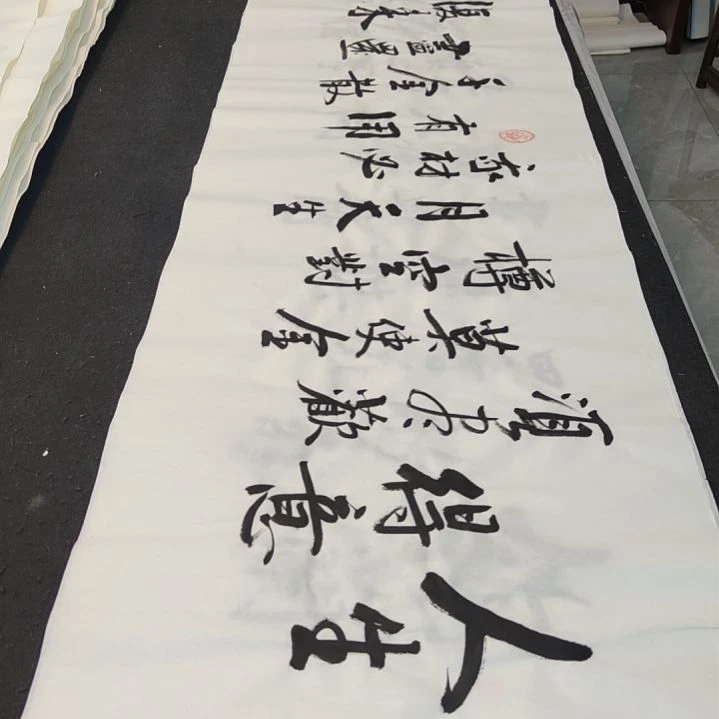 人生
得意
須尽歡
莫使金
樽空對
月天生
我材必
有用
千金散
盡還
復来